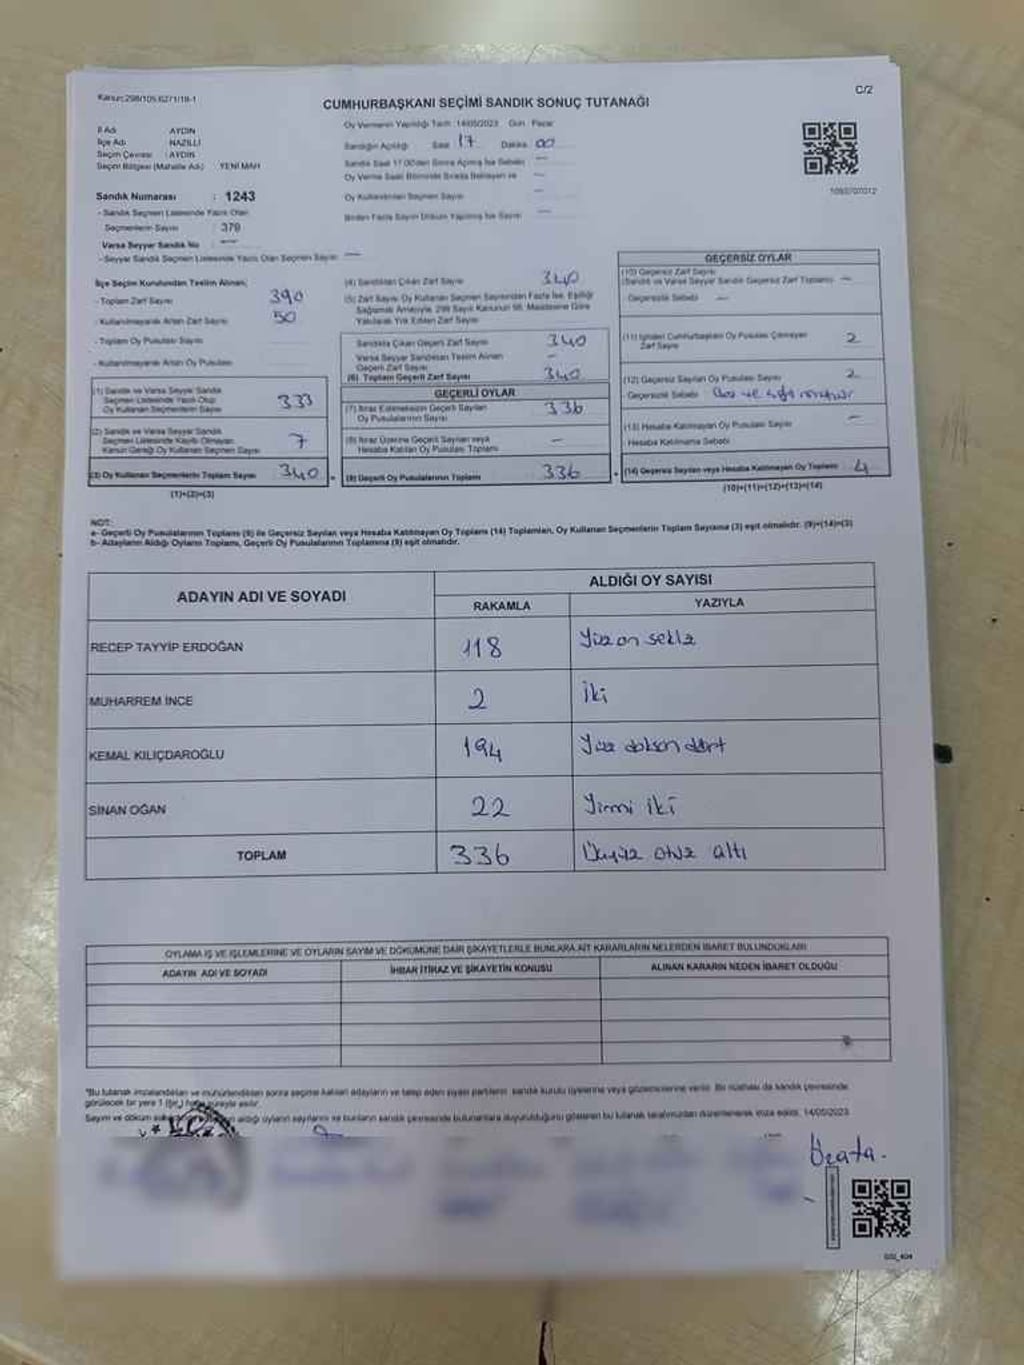 Kanun:298/105;6271/18-1
C/2
CUMHURBAŞKANI SEÇİMİ SANDIK SONUÇ TUTANAĞI
İl Adı AYDIN
İlçe Adı NAZİLLİ
Seçim Çevresi : AYDIN
Seçim Bölgesi (Mahalle Adı) YENİ MAH
Oy Vermenin Yapıldığı Tarih : 14/05/2023 Gün : Pazar
Sandığın Açıldığı Saat 17 Dakika 00
Sandık Saat 17.00'den Sonra Açılmış İse Sebebi —
Oy Verme Saati Bitiminde Sırada Bekleyen ve —
Oy Kullandırılan Seçmen Sayısı —
Birden Fazla Sayım Döküm Yapılmış İse Sayısı —
1093707012
Sandık Numarası : 1243
- Sandık Seçmen Listesinde Yazılı Olan
Seçmenlerin Sayısı : 379
Varsa Seyyar Sandık No : —
- Seyyar Sandık Seçmen Listesinde Yazılı Olan Seçmen Sayısı —
İlçe Seçim Kurulundan Teslim Alınan;
- Toplam Zarf Sayısı 390
- Kullanılmayarak Artan Zarf Sayısı 50
- Toplam Oy Pusulası Sayısı
- Kullanılmayarak Artan Oy Pusulası
(1) Sandık ve Varsa Seyyar Sandık
Seçmen Listesinde Yazılı Olup
Oy Kullanan Seçmenlerin Sayısı 333
(2) Sandık ve Varsa Seyyar Sandık
Seçmen Listesinde Kayıtlı Olmayan
Kanun Gereği Oy Kullanan Seçmen Sayısı 7
(3) Oy Kullanan Seçmenlerin Toplam Sayısı 340
(1)+(2)=(3)
(4) Sandıktan Çıkan Zarf Sayısı 340
(5) Zarf Sayısı Oy Kullanan Seçmen Sayısından Fazla İse, Eşitliği
Sağlamak Amacıyla, 298 Sayılı Kanunun 98. Maddesine Göre
Yakılarak Yok Edilen Zarf Sayısı
Sandıkta Çıkan Geçerli Zarf Sayısı 340
Varsa Seyyar Sandıktan Teslim Alınan
Geçerli Zarf Sayısı —
(6) Toplam Geçerli Zarf Sayısı 340
GEÇERLİ OYLAR
(7) İtiraz Edilmeksizin Geçerli Sayılan
Oy Pusulalarının Sayısı 336
(8) İtiraz Üzerine Geçerli Sayılan veya
Hesaba Katılan Oy Pusulası Toplamı —
(9) Geçerli Oy Pusulalarının Toplamı 336
GEÇERSİZ OYLAR
(10) Geçersiz Zarf Sayısı
(Sandık ve Varsa Seyyar Sandık Geçersiz Zarf Toplamı) —
Geçersizlik Sebebi —
(11) İçinden Cumhurbaşkanı Oy Pusulası Çıkmayan
Zarf Sayısı 2
(12) Geçersiz Sayılan Oy Pusulası Sayısı 2
Geçersizlik Sebebi
(13) Hesaba Katılmayan Oy Pusulası Sayısı —
Hesaba Katılmama Sebebi
(14) Geçersiz Sayılan veya Hesaba Katılmayan Oy Toplamı 4
(10)+(11)+(12)+(13)=(14)
NOT:
a- Geçerli Oy Pusulalarının Toplamı (9) ile Geçersiz Sayılan veya Hesaba Katılmayan Oy Toplamı (14) Toplamları, Oy Kullanan Seçmenlerin Toplam Sayısına (3) eşit olmalıdır. (9)+(14)=(3)
b- Adayların Aldığı Oyların Toplamı, Geçerli Oy Pusulalarının Toplamına (9) eşit olmalıdır.
ADAYIN ADI VE SOYADI
ALDIĞI OY SAYISI
RAKAMLA YAZIYLA
RECEP TAYYİP ERDOĞAN 118 Yüz on sekiz
MUHARREM İNCE 2 İki
KEMAL KILIÇDAROĞLU 194 Yüz doksan dört
SİNAN OĞAN 22 Yirmi iki
TOPLAM 336 Üçyüz otuz altı
OYLAMA İŞ VE İŞLEMLERİNE VE OYLARIN SAYIM VE DÖKÜMÜNE DAİR ŞİKAYETLERLE BUNLARA AİT KARARLARIN NELERDEN İBARET BULUNDUKLARI
ADAYIN ADI VE SOYADI İHBAR İTİRAZ VE ŞİKAYETİN KONUSU ALINAN KARARIN NEDEN İBARET OLDUĞU
*Bu tutanak imzalandıktan ve mühürlendikten sonra seçime katılan adayların ve talep eden siyasi partilerin sandık kurulu üyelerine veya gözlemcilerine verilir. Bir nüshası da sandık çevresinde
görülecek bir yere 1 (bir) hafta süreyle asılır.
Sayım ve döküm aldığı oyların sayılarını ve bunların sandık çevresinde bulunanlara duyurulduğunu gösteren bu tutanak tarafımızdan düzenlenerek imza edildi. 14/05/2023